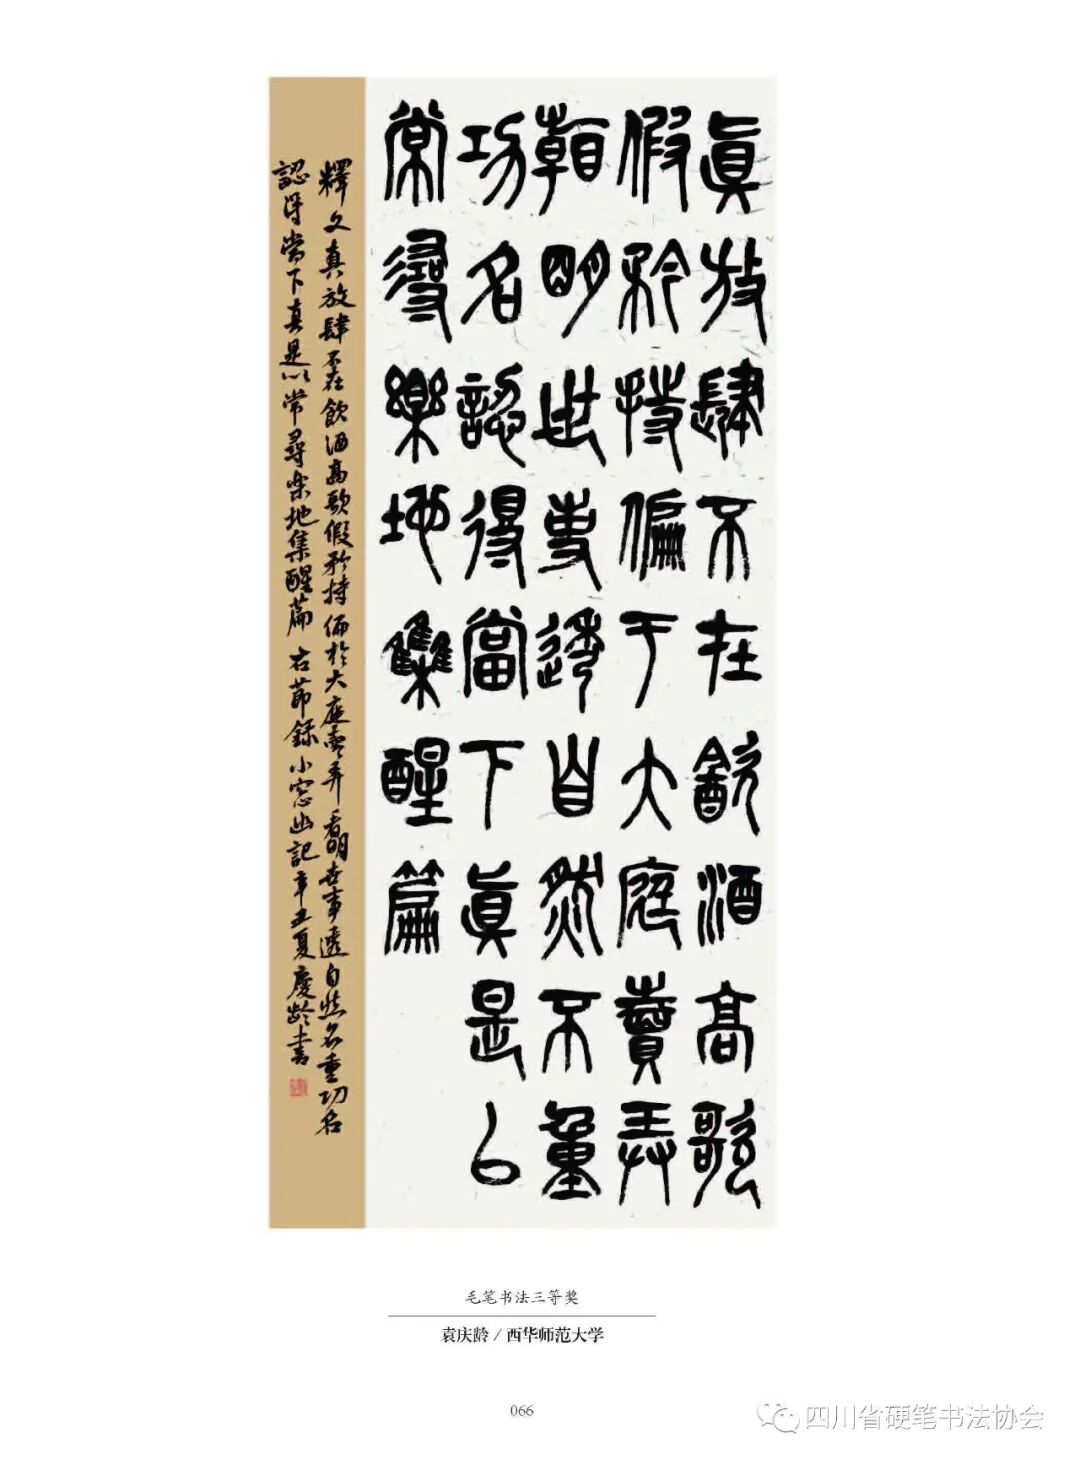 真放肆不在飲酒高歌
假矜持偏于大庭賣弄
看明世事透自然不重
功名認得當下真是以
常尋樂地集醒篇
釋文真放肆不在飲酒高歌假矜持偏於大庭賣弄看明世事透自然不重功名
認得當下真是以常尋樂地集醒篇 右節錄小窗幽記辛丑夏慶齡書
毛笔书法三等奖
袁庆龄 / 西华师范大学
066
四川省硬笔书法协会